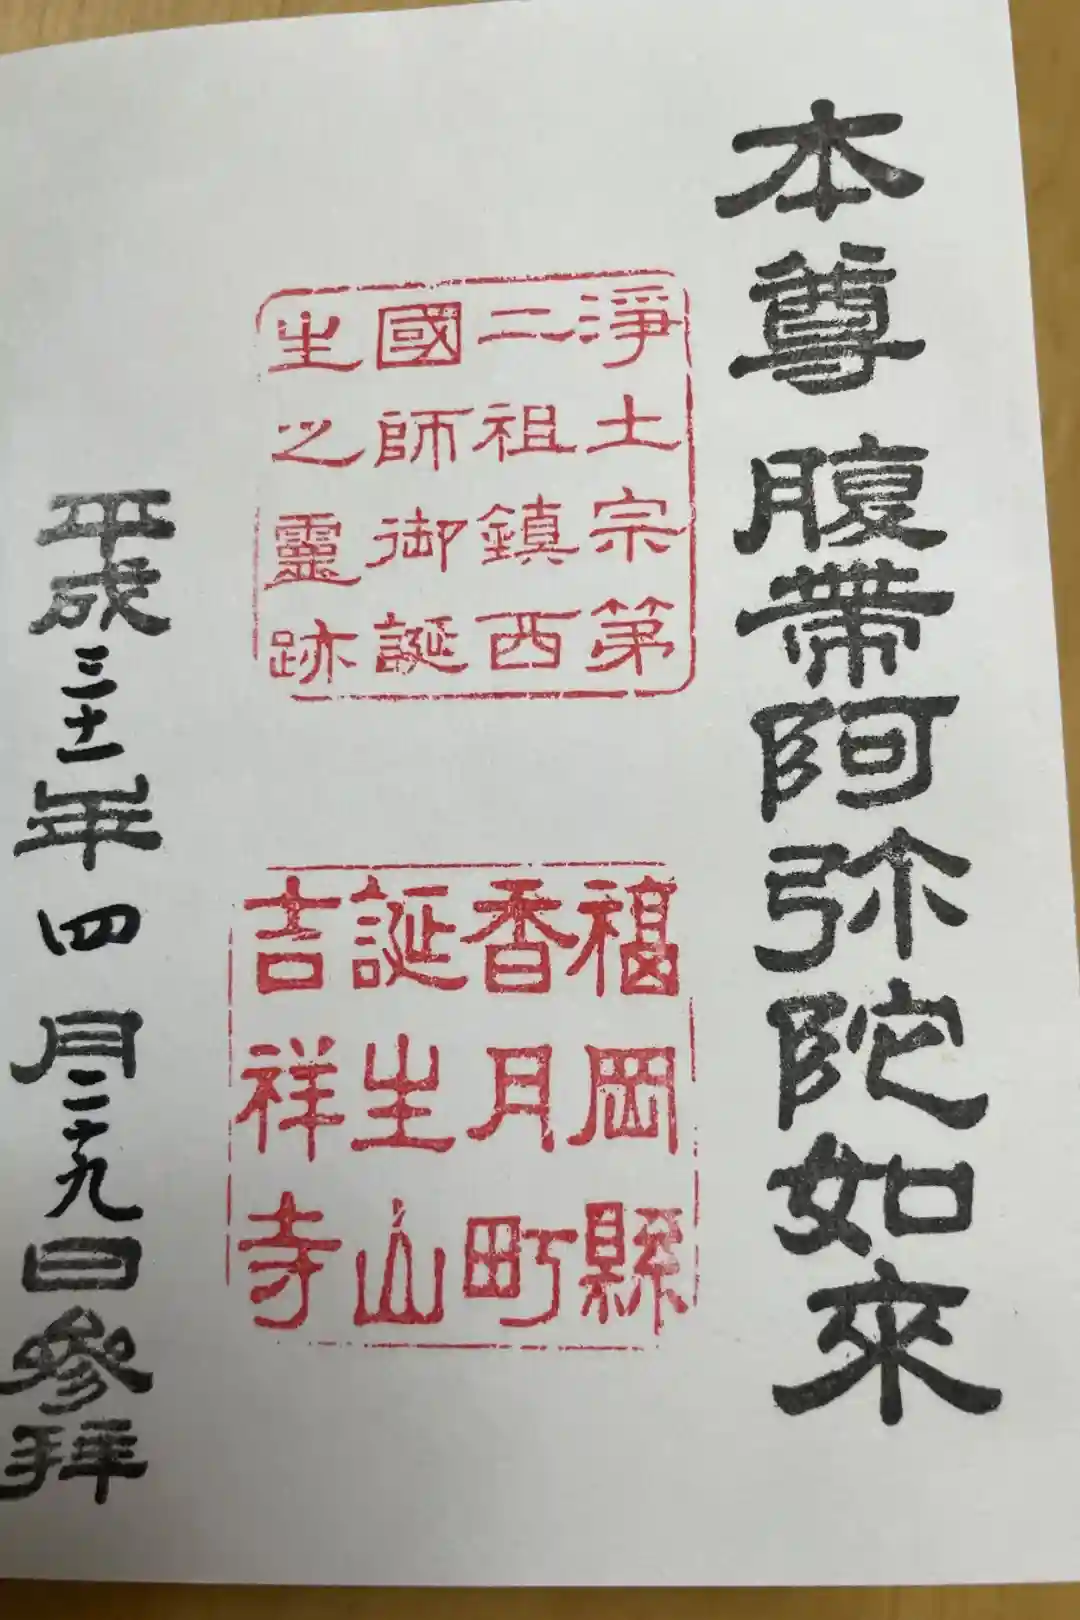 本尊 腹帶阿弥陀如來
淨土宗第
二祖鎮西
國師御誕
生之靈跡
福岡縣
香月町
誕生山
吉祥寺
平成三十一年四月二十九日參拜